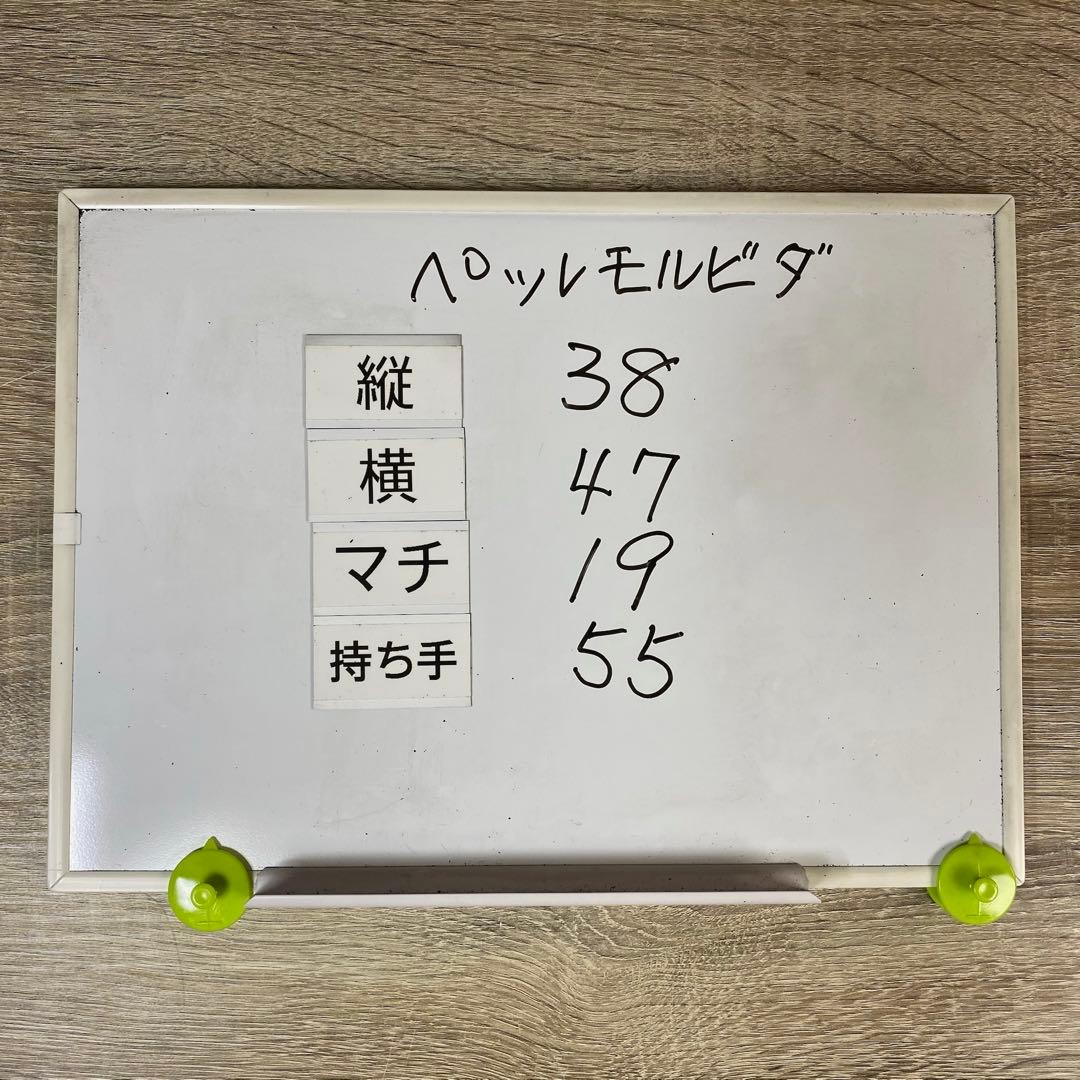 ペッレモルビダ
縦 38
横 47
マチ 19
持ち手 55